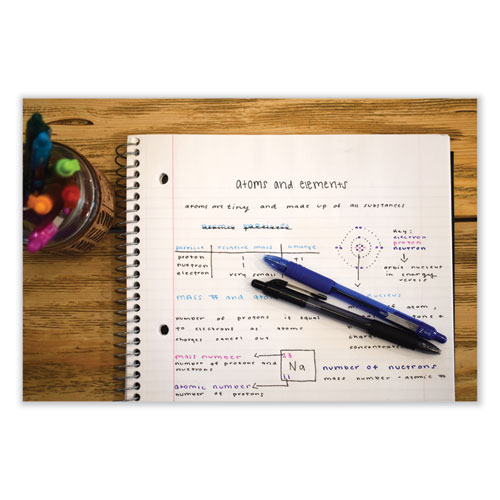 atoms and elements
atoms are tiny and made up of all substances
atomic particles
particle relative mass charge
proton 1 +1
neutron 1
electron very small
Key:
electron
proton
neutron
orbit nucleus
in energy
levels
mass # and nucleus
number of protons is equal atom,
to electrons as atomic
charges cancel out
mass number 23
number of protons and
neutrons
Na number of neutrons
11 mass number - atomic #
atomic number
number of protons